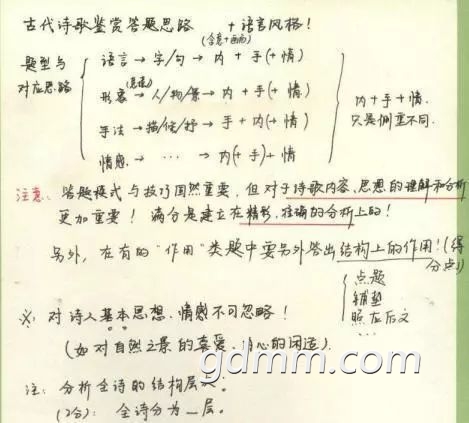 古代诗歌鉴赏答题思路 + 语言风格!
(含意+画面)
题型与
对应思路
语言 → 字/句 → 内 + 手(+ 情)
形象 → 人/物/景 → 内 + 手(+ 情)
手法 → 描/修/抒 → 手 + 内(+ 情)
情感 → … → 内(+ 手)+ 情
内+手+情.
只是侧重不同.
注意: 答题模式与技巧固然重要, 但对于诗歌内容、思想的理解和分析
更加重要! 满分是建立在精彩,准确的分析上的!
另外, 在有的"作用"类题中要另外答出结构上的作用! (得
分点!)
点题
铺垫
照应后文
…
※: 对诗人基本思想、情感不可忽略!
(如对自然之景的喜爱, 内心的闲适).
注: 分析全诗的结构层次.
(2分): 全诗分为_层.
gdmm.com